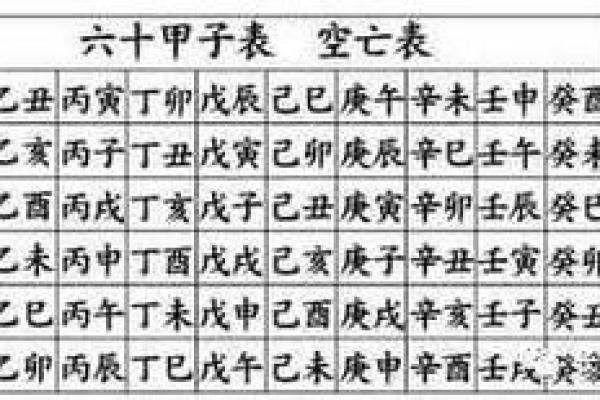 六十甲子表 空亡表
乙丑 丙寅 丁卯 戊辰 己巳 庚午 辛未 壬申 癸酉
乙亥 丙子 丁丑 戊寅 己卯 庚辰 辛巳 壬午 癸未
乙酉 丙戌 丁亥 戊子 己丑 庚寅 辛卯 壬辰 癸巳
乙未 丙申 丁酉 戊戌 己亥 庚子 辛丑 壬寅 癸卯
乙巳 丙午 丁未 戊申 己酉 庚戌 辛亥 壬子 癸丑
乙卯 丙辰 丁巳 戊午 己未 庚申 辛酉 壬戌 癸亥